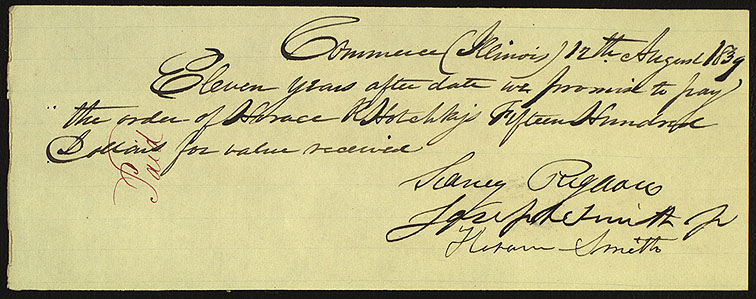 Commerce (Illinois) 12th August 1839
Eleven years after date we promise to pay
the order of Horace R Hotchkiss Fifteen Hundred
Dollars for value received
Paid
Sidney Rigdon
Joseph Smith Jr
Hiram Smith